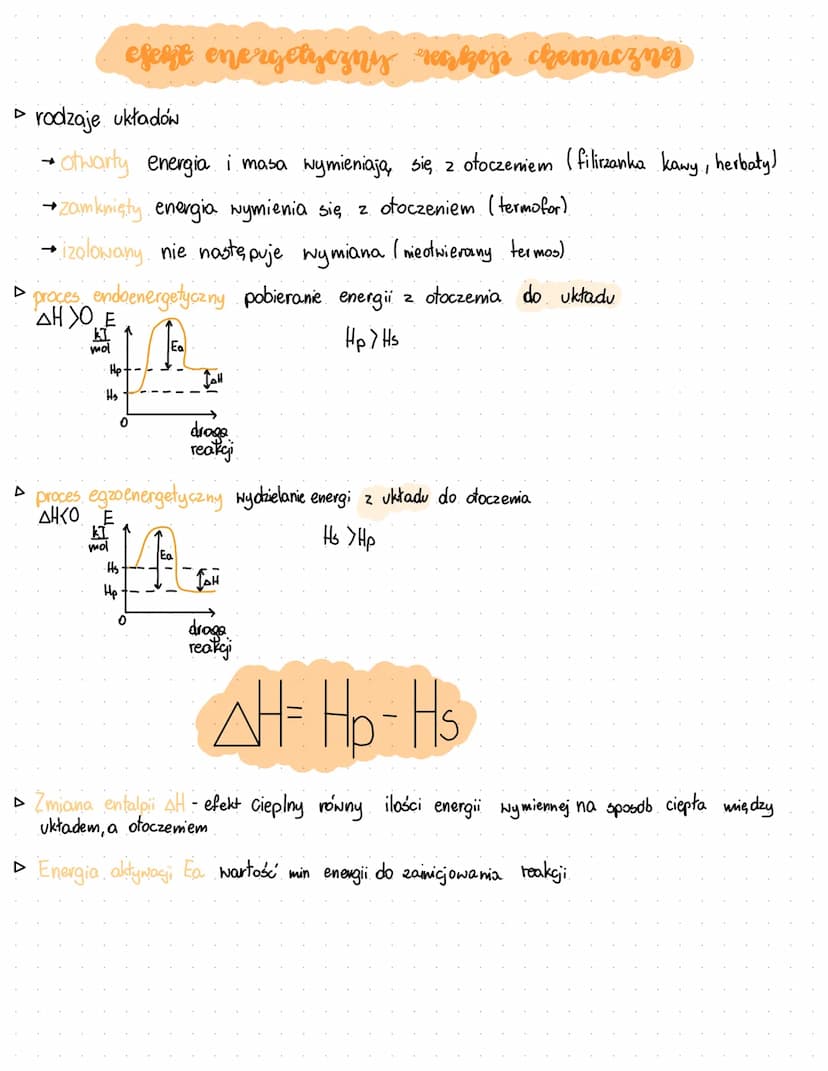 efekt energetyczny reakcji chemicznej
▷ rodzaje układów
→ otwarty energia i masa wymieniają się z otoczeniem (filirzanka kawy, herbaty)
→ zamknięty energia wymienia się z otoczeniem (termofor)
→ izolowany nie następuje wymiana (nieotwierany termos)
▷ proces endoenergetyczny pobieranie energii z otoczenia do układu
ΔH>0 E
kJ
mol
Hp>Hs
Ea
Hp
ΔH
Hs
0
droga
reakcji
▷ proces egzoenergetyczny wydzielanie energi z układu do otoczenia
ΔH<0 E
kJ
mol
Hs >Hp
Ea
Hs
ΔH
Hp
0
droga
reakcji
ΔH= Hp-Hs
▷ Zmiana entalpii ΔH - efekt cieplny równy ilości energii wymiennej na sposób ciepła między
układem, a otoczeniem
▷ Energia aktywacji Ea wartość min energii do zainicjowania reakcji